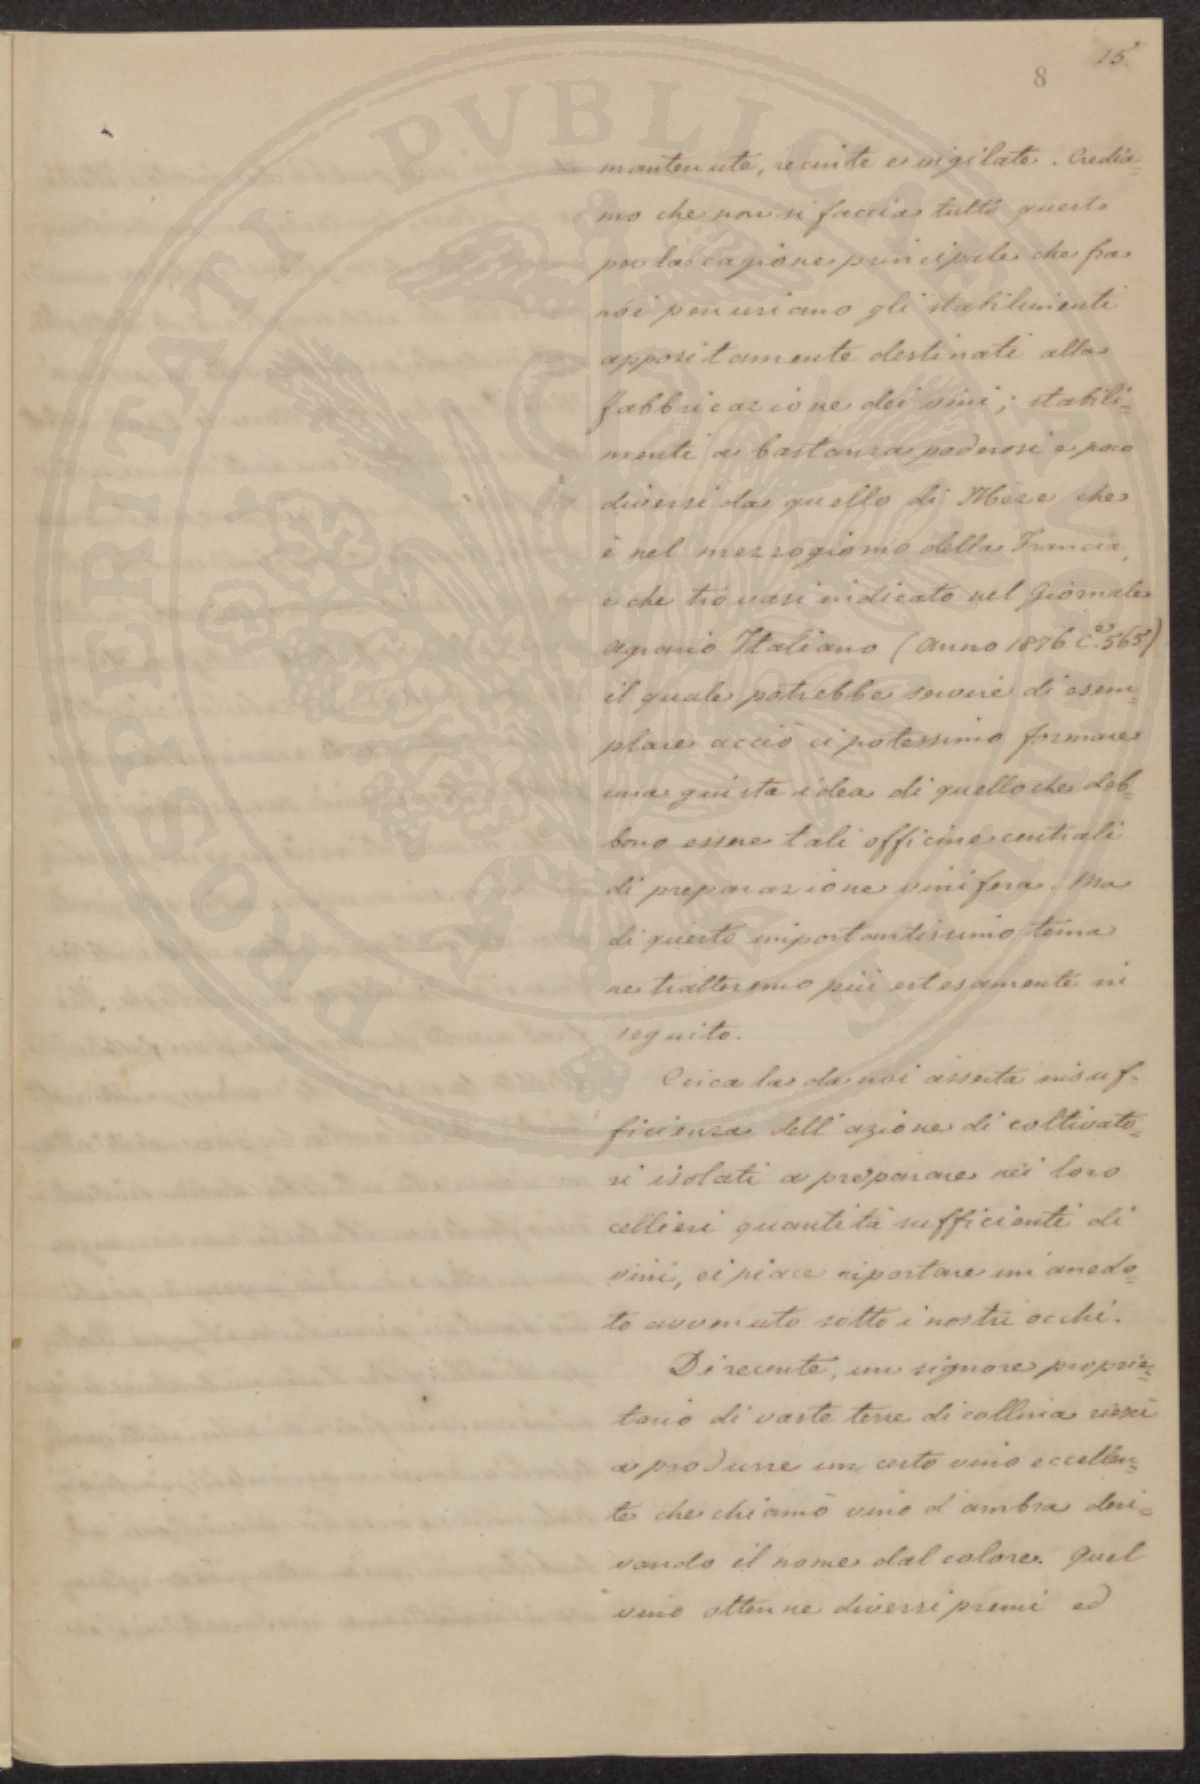 15.
8
mantenute, recinte e vigilate. Credia=
mo che non si faccia tutto questo
per la cagione principale che fra
noi penuriamo gli stabilimenti
appositamente destinati alla
fabbricazione dei vini; stabili=
menti a bastanza poderosi e poco
diversi da quello di Meze che
è nel mezzogiorno della Francia,
e che trovasi indicato nel Giornale
agrario Italiano (anno 1876 C.e 565)
il quale potrebbe servire di esem=
plare acciò ci potessimo formare
una giusta idea di quello che deb=
bono essere tali officine centrali
di preparazione vinifera. Ma
di questo importantissimo tema
ne tratteremo più estesamente in
seguito.
Circa la da noi asserta insuf=
ficienza dell'azione di coltivato=
ri isolati a preparare nei loro
cellieri quantità sufficienti di
vini, ci piace riportare un anedo=
to avvenuto sotto i nostri occhi.
Di recente, un signore proprie=
tario di vaste terre di collina riescì
a produrre un certo vino eccellen=
te che chiamò vino d'ambra deri=
vando il nome dal colore. Quel
vino ottenne diversi premi ed
PROSPERITATI PVBLICAE